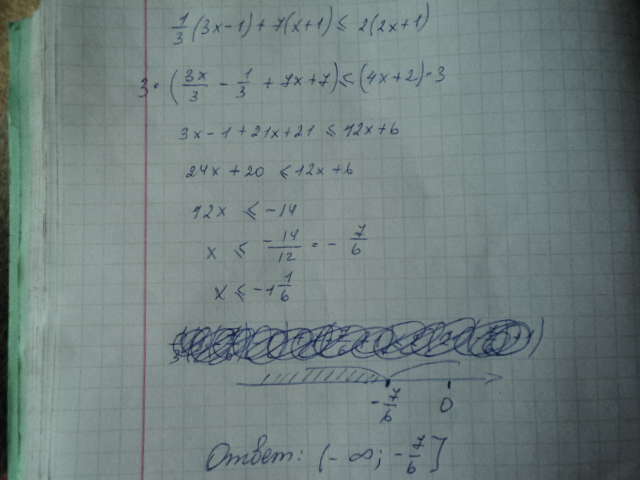 1/3 (3x-1) + 7(x+1) ≤ 2(2x+1)
3· (3x/3 - 1/3 + 7x+7) ≤ (4x+2)·3
3x-1+21x+21 ≤ 12x+6
24x+20 ≤ 12x+6
12x ≤ -14
x ≤ -14/12 = - 7/6
x ≤ -1 1/6
-7/6 0
Ответ: (-∞; -7/6]